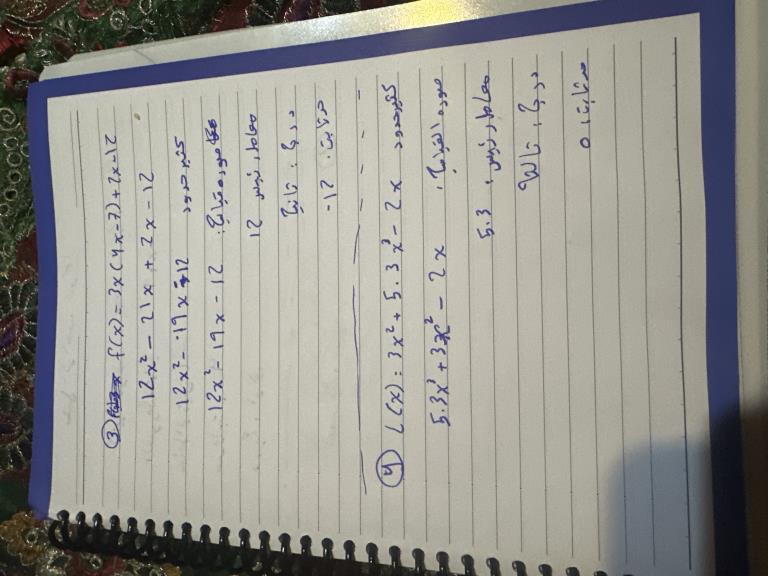 ③ f(x) = 3x(4x-7)+2x-12
12x² - 21x + 2x - 12
12x² - 19x - 12 كثير حدود
12x² - 19x - 12 صورة قياسية:
معامل رئيسي 12
درجة: ثانية
ثابت: -12
④ L(x) = 3x² + 5.3x³ - 2x كثير حدود
5.3x³ + 3x² - 2x صورة القياسية:
معامل رئيسي: 5.3
درجة: ثالثة
ثابت: 0